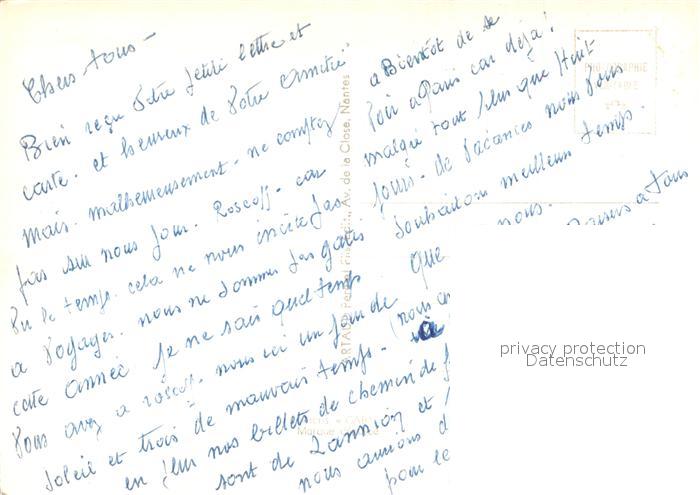 Chers tous -
Bien reçu Votre petite lettre et
carte - et heureux de Votre Amitié
mais - malheureusement - ne comptez
pas sur nous pour - Roscoff - car
Vu le temps - cela ne nous incite pas
a Voyager - nous ne sommes pas gatés
cette année je ne sais quel temps
Vous avez a roscoff - nous ici un jour de
soleil et trois de mauvais temps -
en plus nos billets de chemin de f
sont de Lannion et
nous aurions d
pour le
que
(nous
à
a Bientôt de se
Voir a Paris car déja !
malgré tout plus que Huit
jours - de Vacances nous Vous
souhaitons meilleur temps -
nous -
Baisers a tous
Av. de la Close, Nantes
privacy protection
Datenschutz